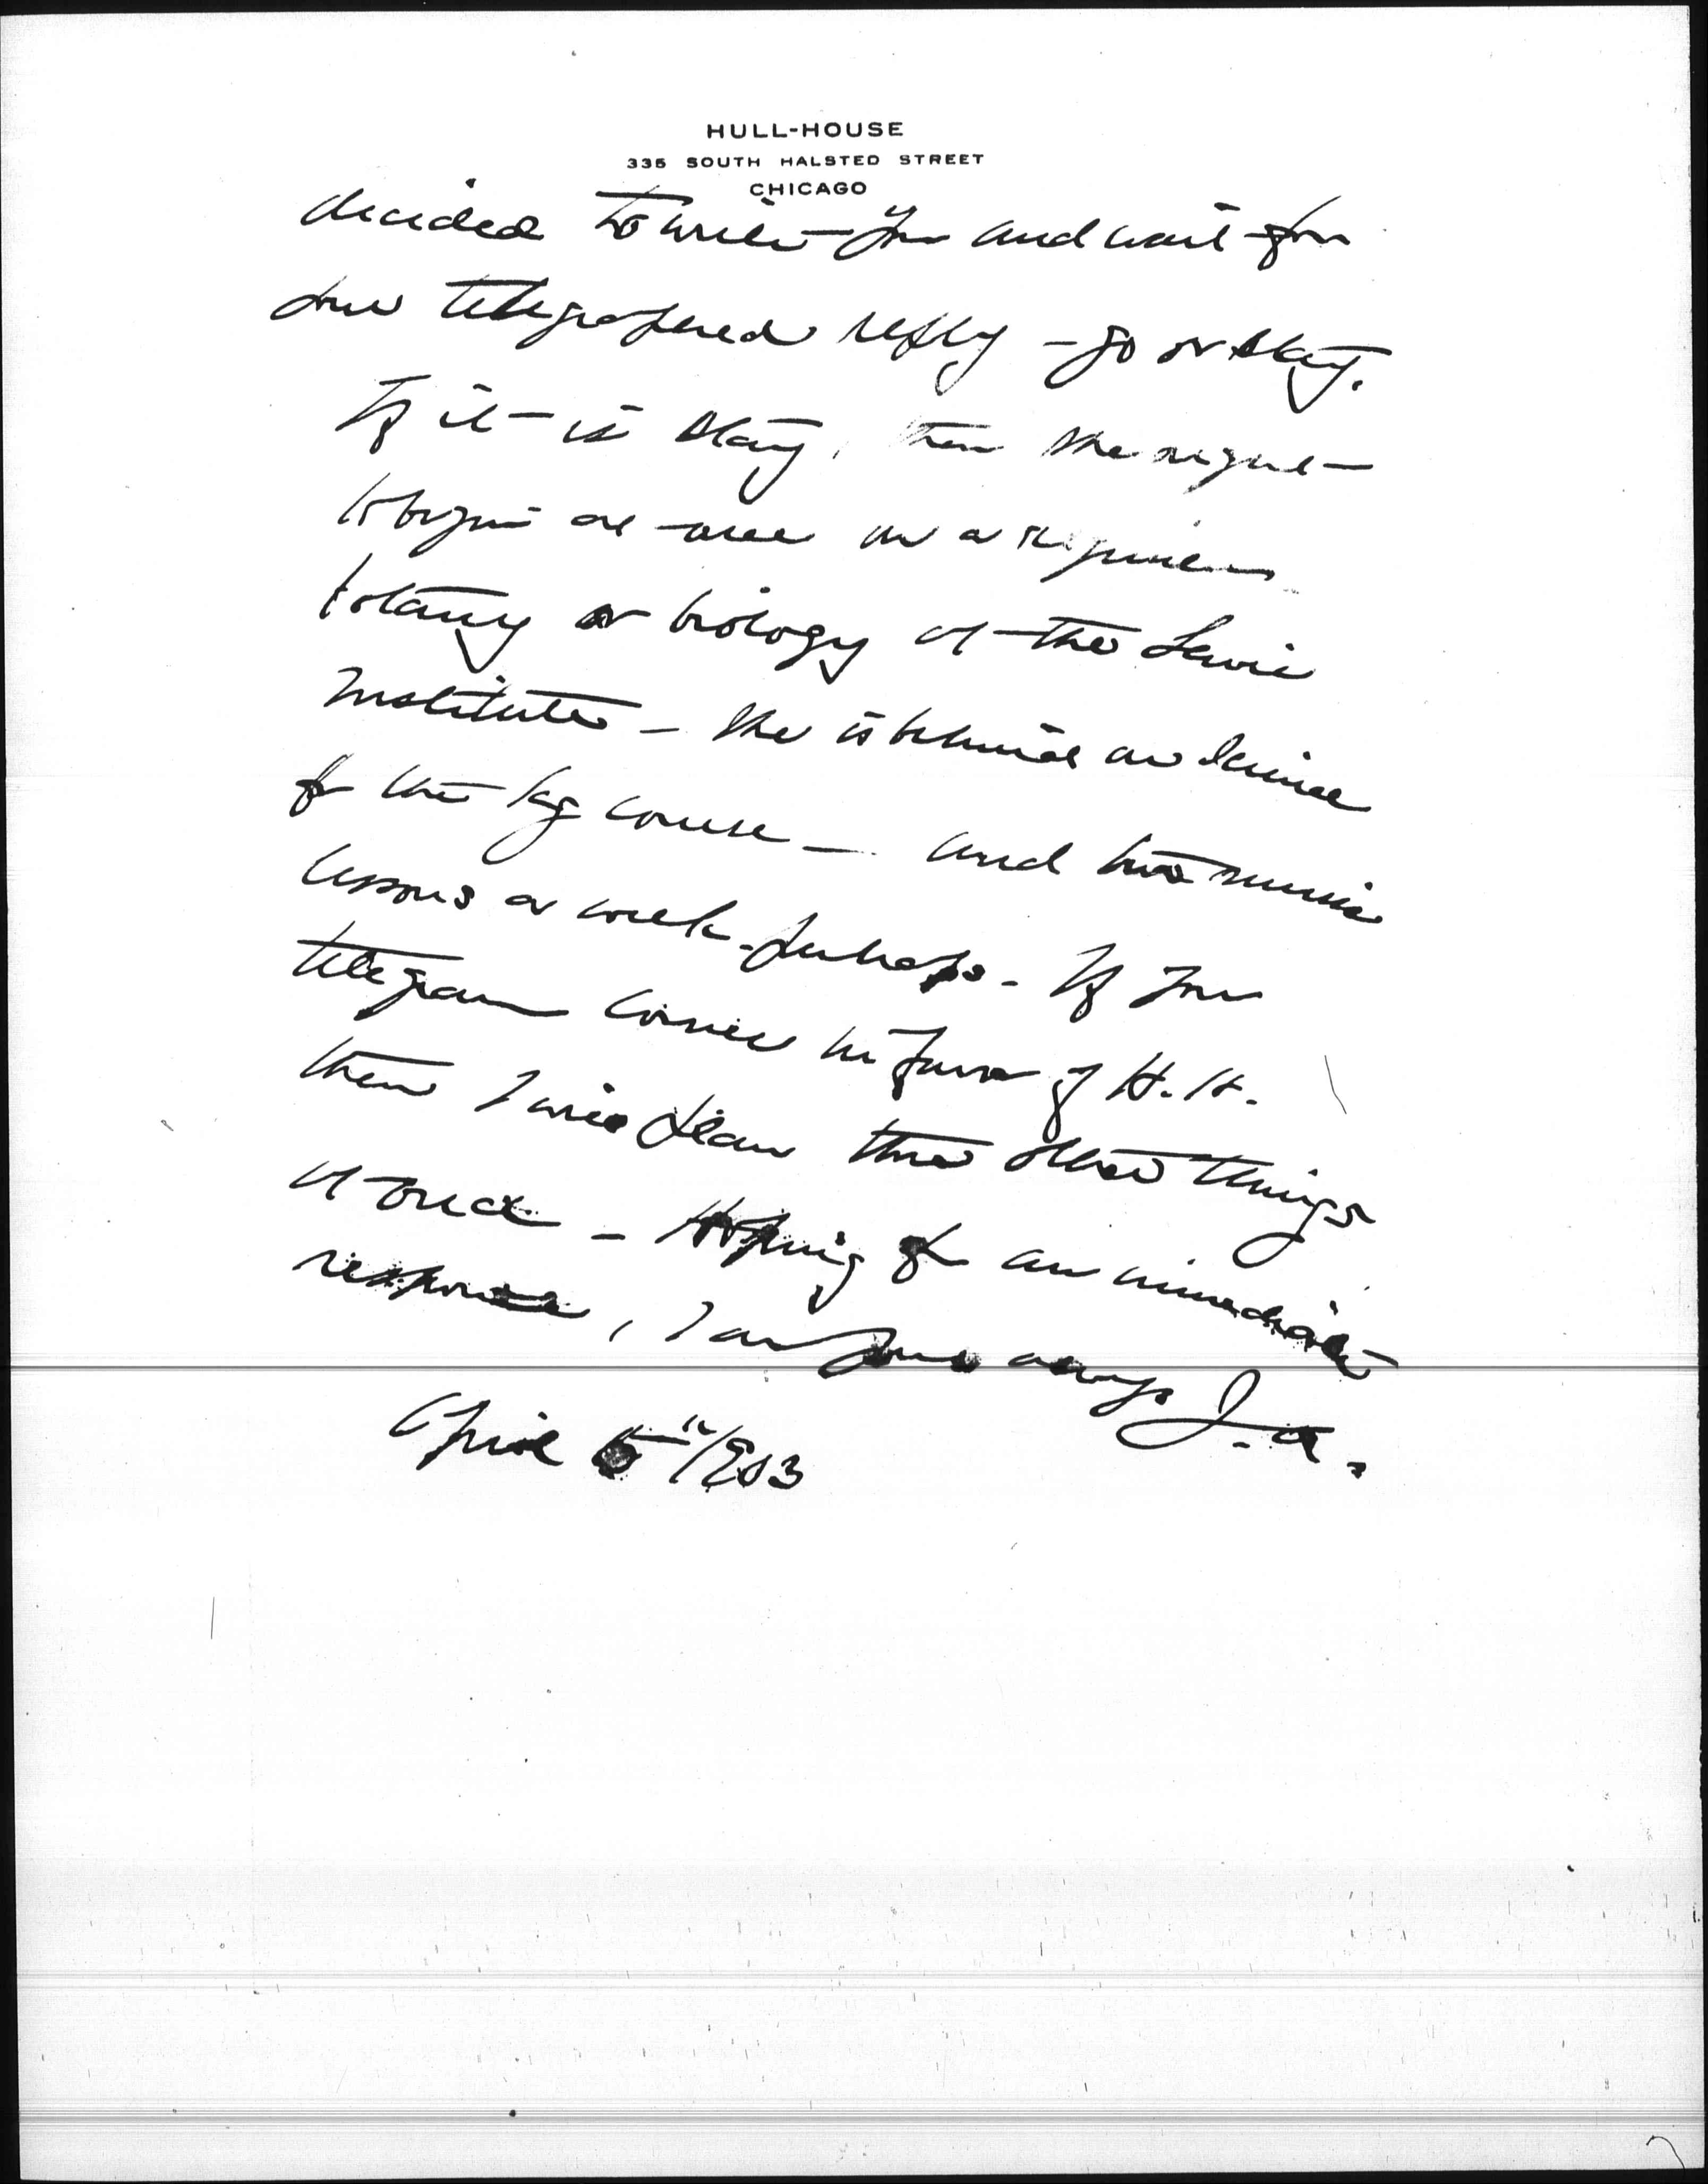 HULL-HOUSE
335 SOUTH HALSTED STREET
CHICAGO
decided to write you and wait for
your telegraphed reply - go or stay.
If it is stay, then she might
to begin at once on a required
botany or biology at the Lewis
Institute - she is behind on science
for the kg course - and two music
lessons a week perhaps. If your
telegram comes in favor of H.H.
then I will plan these other things
at once - Hoping for an immediate
response, I am yours always J.A.
April 5" 1903